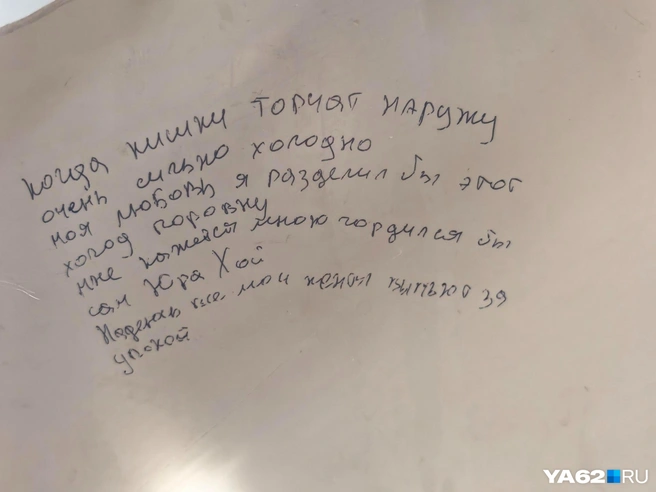 когда кишки торчат наружу
очень сильно холодно
моя любовь я разделил бы этот
холод поровну
мне кажется мною гордился бы
сам Юра Хой
Надеюсь все мои жены выпьют за
упокой
YA62.RU